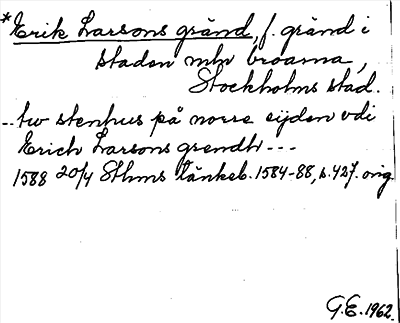 *Erik Larsons gränd, f. gränd i
staden mln broarna,
Stockholms stad.
--tw stenhus på norre sijden vdi
Erich Larsons grendh---
1588 20/4 Sthms tänkeb. 1584-88, s.427. orig.
G.E. 1962.